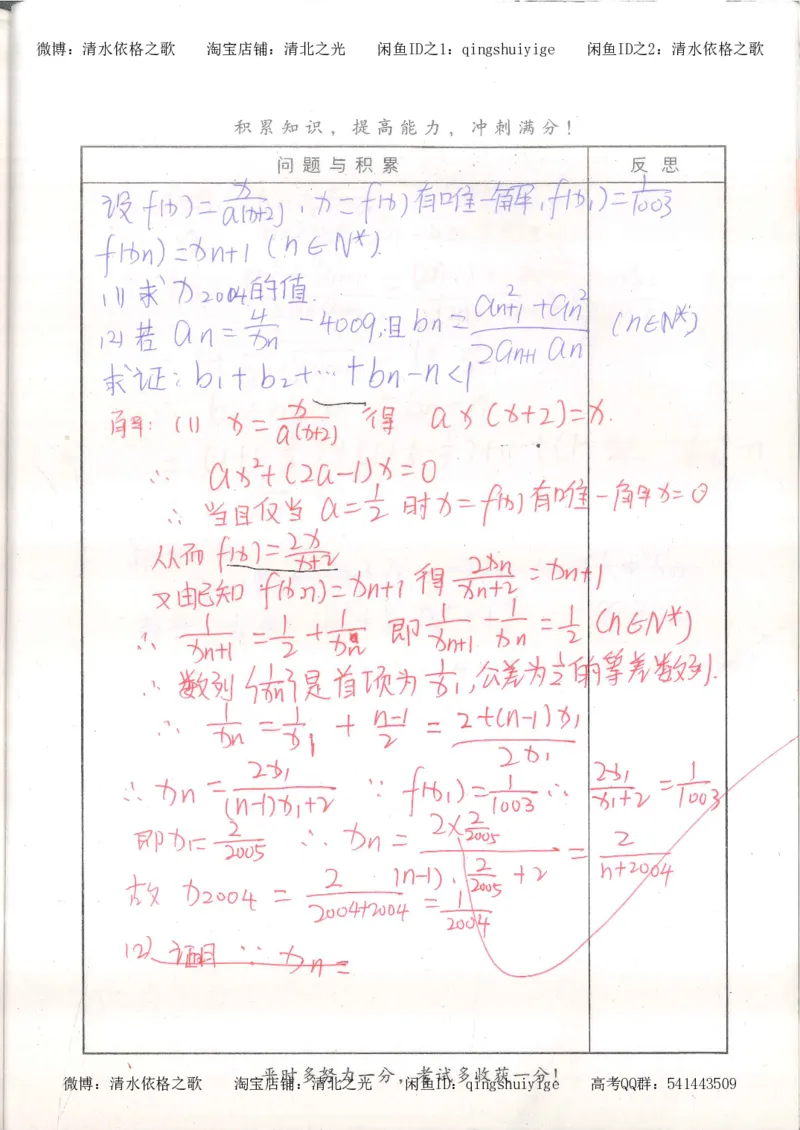 微博：清水依格之歌 淘宝店铺：清北之光 闲鱼ID之1：qingshuiyige 闲鱼ID之2：清水依格之歌
积累知识，提高能力，冲刺满分！
问题与积累 反思
设f(x)=x/a(x+2)，x=f(x)有唯一解，f(x₁)=1/1003
f(xn)=xn+1 (n∈N*).
(1)求x2004的值.
(2)若an=4/xn-4009,且bn=(an+1²+an²)/(2an+1 an) (n∈N*)
求证：b1+b2+…+bn-n<1
解：(1) x=x/a(x+2) 得 ax(x+2)=x.
∴ ax²+(2a-1)x=0
∴ 当且仅当a=1/2时x=f(x)有唯一解x=0
从而f(x)=2x/x+2
又由已知f(xn)=xn+1得2xn/xn+2=xn+1
∴ 1/xn+1=1/2+1/xn 即1/xn+1-1/xn=1/2 (n∈N*)
∴ 数列{1/xn}是首项为1/x₁,公差为1/2的等差数列.
∴ 1/xn=1/x₁+(n-1)/2=(2+(n-1)x₁)/2x₁
∴ xn=2x₁/((n-1)x₁+2) ∵ f(x₁)=1/1003 ∴ 2x₁/(x₁+2)=1/1003
即x₁=2/2005 ∴ xn=(2×2/2005)/((n-1)·2/2005+2)=2/(n+2004)
故x2004=2/(2004+2004)=1/2004
(2)证明∵xn=
平时多努力一分，考试多收获一分！
微博：清水依格之歌 淘宝店铺：清北之光 闲鱼ID：qingshuiyige 高考QQ群：541443509